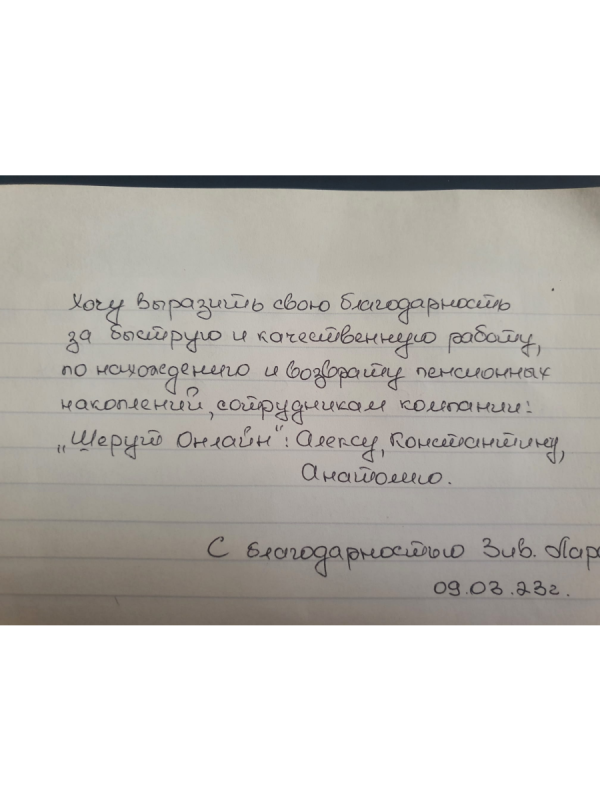 Хочу выразить свою благодарность
за быструю и качественную работу,
по нахождению и возврату пенсионных
накоплений, сотрудникам компании:
„Шерут Онлайн“: Алексу, Константину,
Анатолию.
С благодарностью Зив.
09.03.23г.